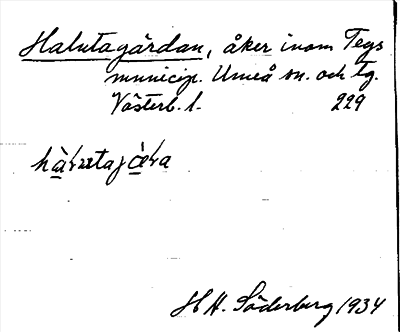 Halutagärdan, åker inom Tegs
municip. Umeå sn. och tg.
Västerb. l. 229
H H. Söderberg 1934